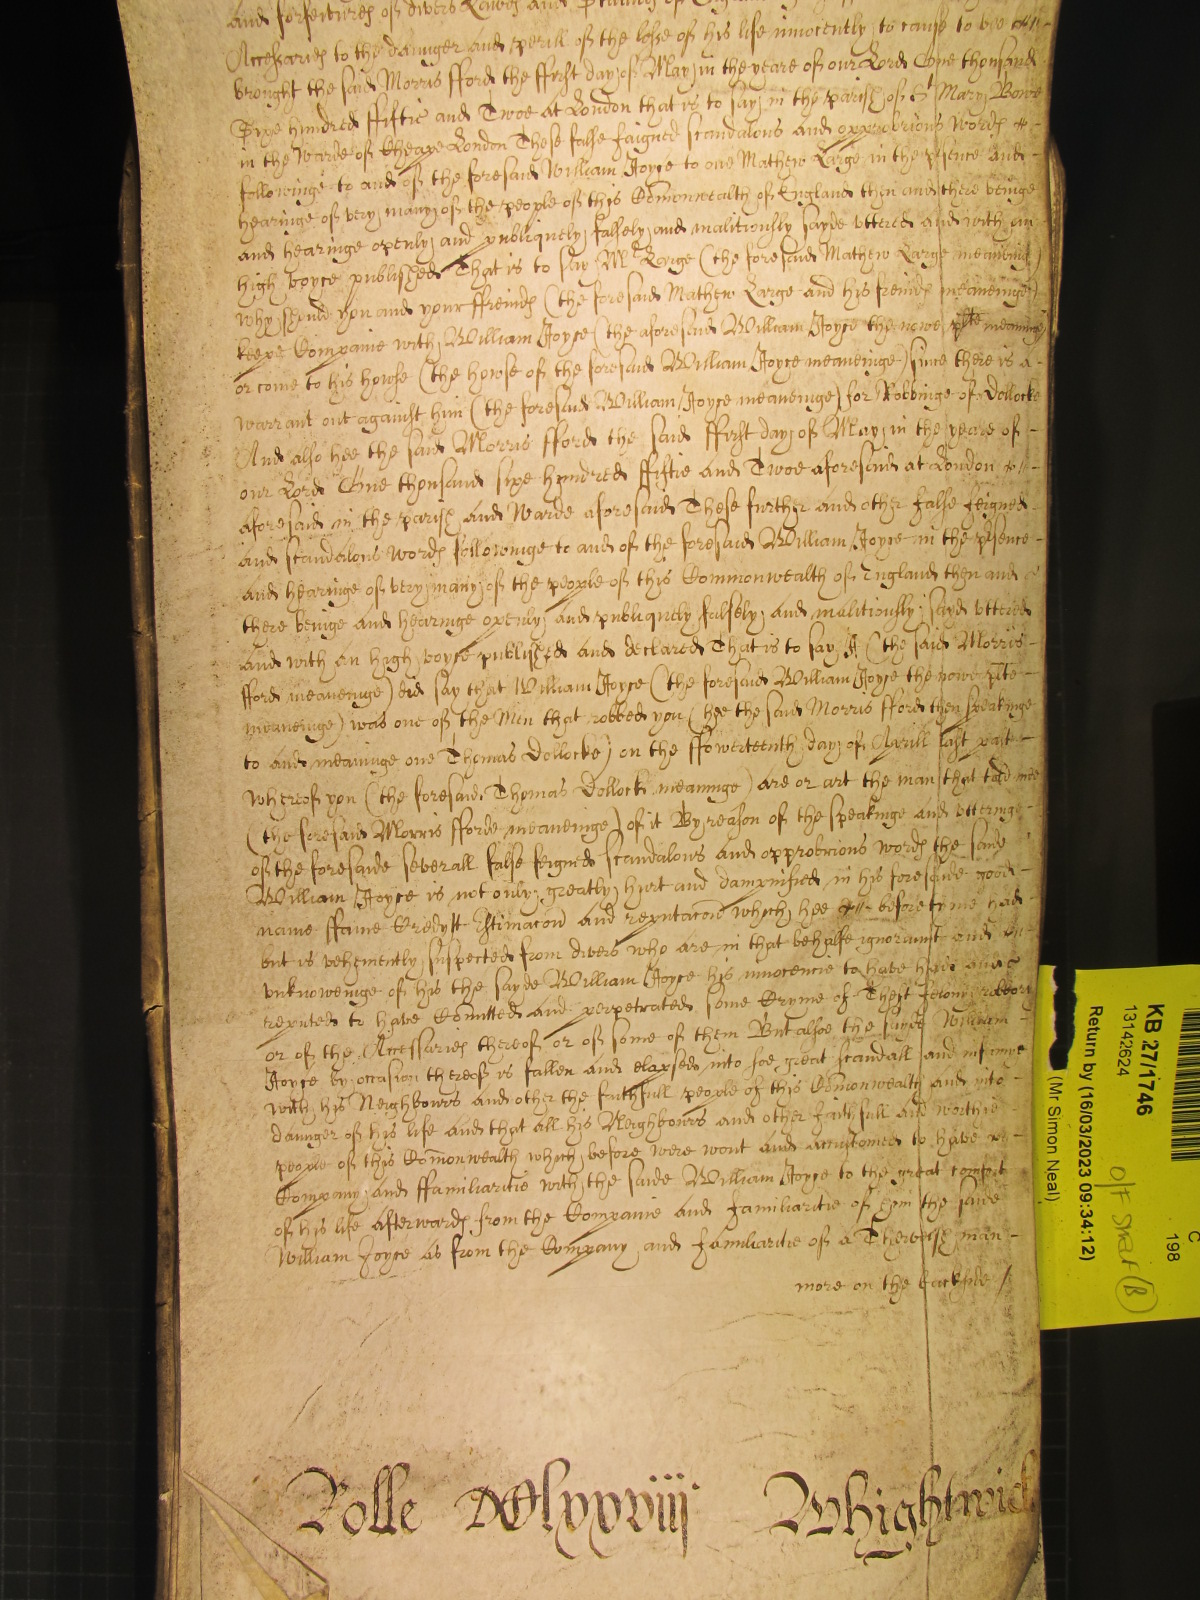 and forfeitures of divers Lawes and Statutes of
Accessaries to the daunger and perill of the losse of his life innocently to cause to bee
brought the said Morris fford the ffirst day of May in the yeare of our Lord One thousand
Sixe hundred ffiftie and Twoe at London that is to say in the parish of St Mary Bowe
in the Warde of Cheape London These false faigned scandalous and opprobrious words
followinge to and of the foresaid William Joyce to one Mathew Large in the psence and
hearinge of very many of the people of this Comonwealth of England then and there beinge
and hearinge openly and publiquely falsely and malitiously sayde uttered and with an
high voyce published That is to say Mr Large (the foresaid Mathew Large meaning)
why should you and your ffreinds (the foresaid Mathew Large and his freinds meaneinge)
keepe Companie with William Joyce (the aforesaid William Joyce the nowe plte meaninge)
or come to his howse (the howse of the foresaid William Joyce meaneinge) since there is a
warrant out against him (the foresaid William Joyce meaneinge) for Robbinge of Dollocke
And also hee the said Morris fford the said ffirst day of May in the yeare of
our Lord One thousand sixe hundred ffiftie and Twoe aforesaid at London
aforesaid in the parish and Warde aforesaid These further and other false feigned
and scandalous words followinge to and of the foresaid William Joyce in the psence
and hearinge of very many of the people of this Commonwealth of England then and
there beinge and hearinge openly and publiquely falsely and malitiously sayd uttered
and with an high voyce published and declared That is to say I (the said Morris
fford meaneinge) did say that William Joyce (the foresaid William Joyce the nowe plte
meaneinge) was one of the Men that robbed you (hee the said Morris fford then speakinge
to and meaninge one Thomas Dollocke) on the ffowerteenth day of Aprill last past
whereof you (the foresaid Thomas Dollock meaninge) are or art the man that told mee
(the foresaid Morris fforde meaneinge) of it By reason of the speakinge and utteringe
of the foresaide severall false feigned scandalous and opprobrious words the saide
William Joyce is not only greatly hurt and dampnified in his foresaide good
name ffame Credytt Estimacon and reputacon which hee beforetyme had
but is vehemently suspected from divers who are in that behalfe ignorannt and
unknoweinge of his the sayde William Joyce his innocencie to have had and
reputed to have Comitted and perpetrated some Cryme of Theft felony robbery
or of the Accessaries thereof or of some of them But alsoe the sayde William
Joyce by occasion thereof is fallen and elapsed into soe great scandall and infamye
with his Neighbours and other the faithfull people of this Comonwealth and into
daunger of his life and that all his Neighbours and other faithfull and worthie
people of this Comonwealth which before were wont and accustomed to have
Company and ffamiliaritie with the saide William Joyce to the great comfort
of his life afterwards from the Companie and familiaritie of him the saide
William Joyce as from the Company and familiaritie of a Theevishe man
more on the backside
Rolle MClxxviij Whightwick
KB 27/1746
13142624
Return by (16/03/2023 09:34:12)
(Mr Simon Neal)
C
198
O/F Strat B